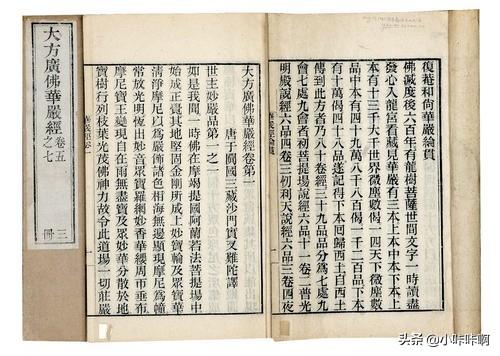 復菴和尚華嚴綸貫
佛滅度後六百年有龍樹菩薩世間文字一時讀盡
發心入龍宮看藏見華嚴有三本上本中本下本上
本有十三千大千世界微塵數偈一四天下微塵數
品中本有四十九萬八千八百偈一千二百品下本
有十萬偈四十八品遂記得下本回歸西土自西土
傳到此方者乃八十卷經三十九品品分爲七處九
會七處九會者初菩提場說經六品十一卷二普光
明殿說經六品四卷三忉利天說經六品三卷四夜
大方廣佛華嚴經卷第一
唐于闐國三藏沙門實叉難陀譯
世主妙嚴品第一之一
如是我聞一時佛在摩竭提國阿蘭若法菩提場中
始成正覺其地堅固金剛所成上妙寶輪及眾寶華
清淨摩尼以爲嚴飾諸色相海無邊顯現摩尼爲幢
常放光明恆出妙音眾寶羅網妙香華纓周帀垂布
摩尼寶王變現自在雨無盡寶及眾妙華分散於地
寶樹行列枝葉光茂佛神力故令此道場一切莊嚴
華嚴經卷一
大方廣佛華嚴經
卷五之七
三冊
头条 @小咔咔啊